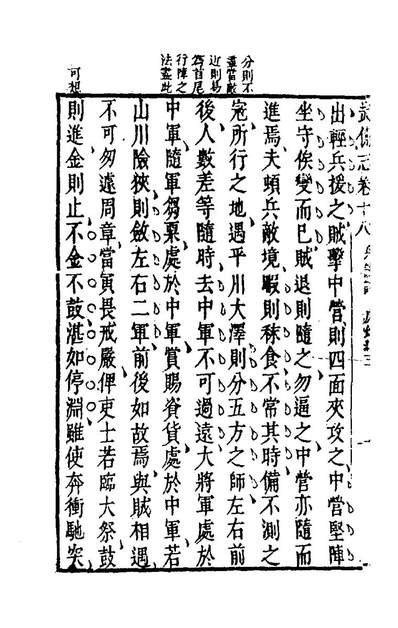 武備志卷十八
出輕兵援之賊擊中營則四面夾攻之中營堅陣
坐守俟變而已賊退則隨之勿逼之中營亦隨而
進焉夫頓兵敵境暇則秣食不常其時備不測之
寇所行之地遇平川大澤則分五方之師左右前
後人數差等隨時去中軍不可過遠大將軍處於
中軍隨軍芻粟處於中軍賞賜資貨處於中軍若
山川險狹則斂左右二軍前後如故焉與賊相遇
不可匆遽周章當寅畏戒嚴俾吏士若臨大祭鼓
則進金則止不金不鼓湛如停淵雖使奔衝馳突
分則不
盡當敵
近則易
為首尾
行陣之
法盡此
可想